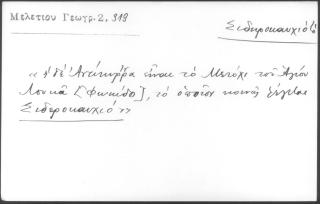 Μελετίου Γεωγρ. 2, 319
Σιδεροκαυχιό
« ἡ δὲ Ἀντίκυρρα εἶναι τὸ Μετόχι τοῦ Ἁγίου
Λουκᾶ [Φωκίδο], τὸ ὁποῖον κοινῶς λέγεται
Σιδεροκαυχιό »